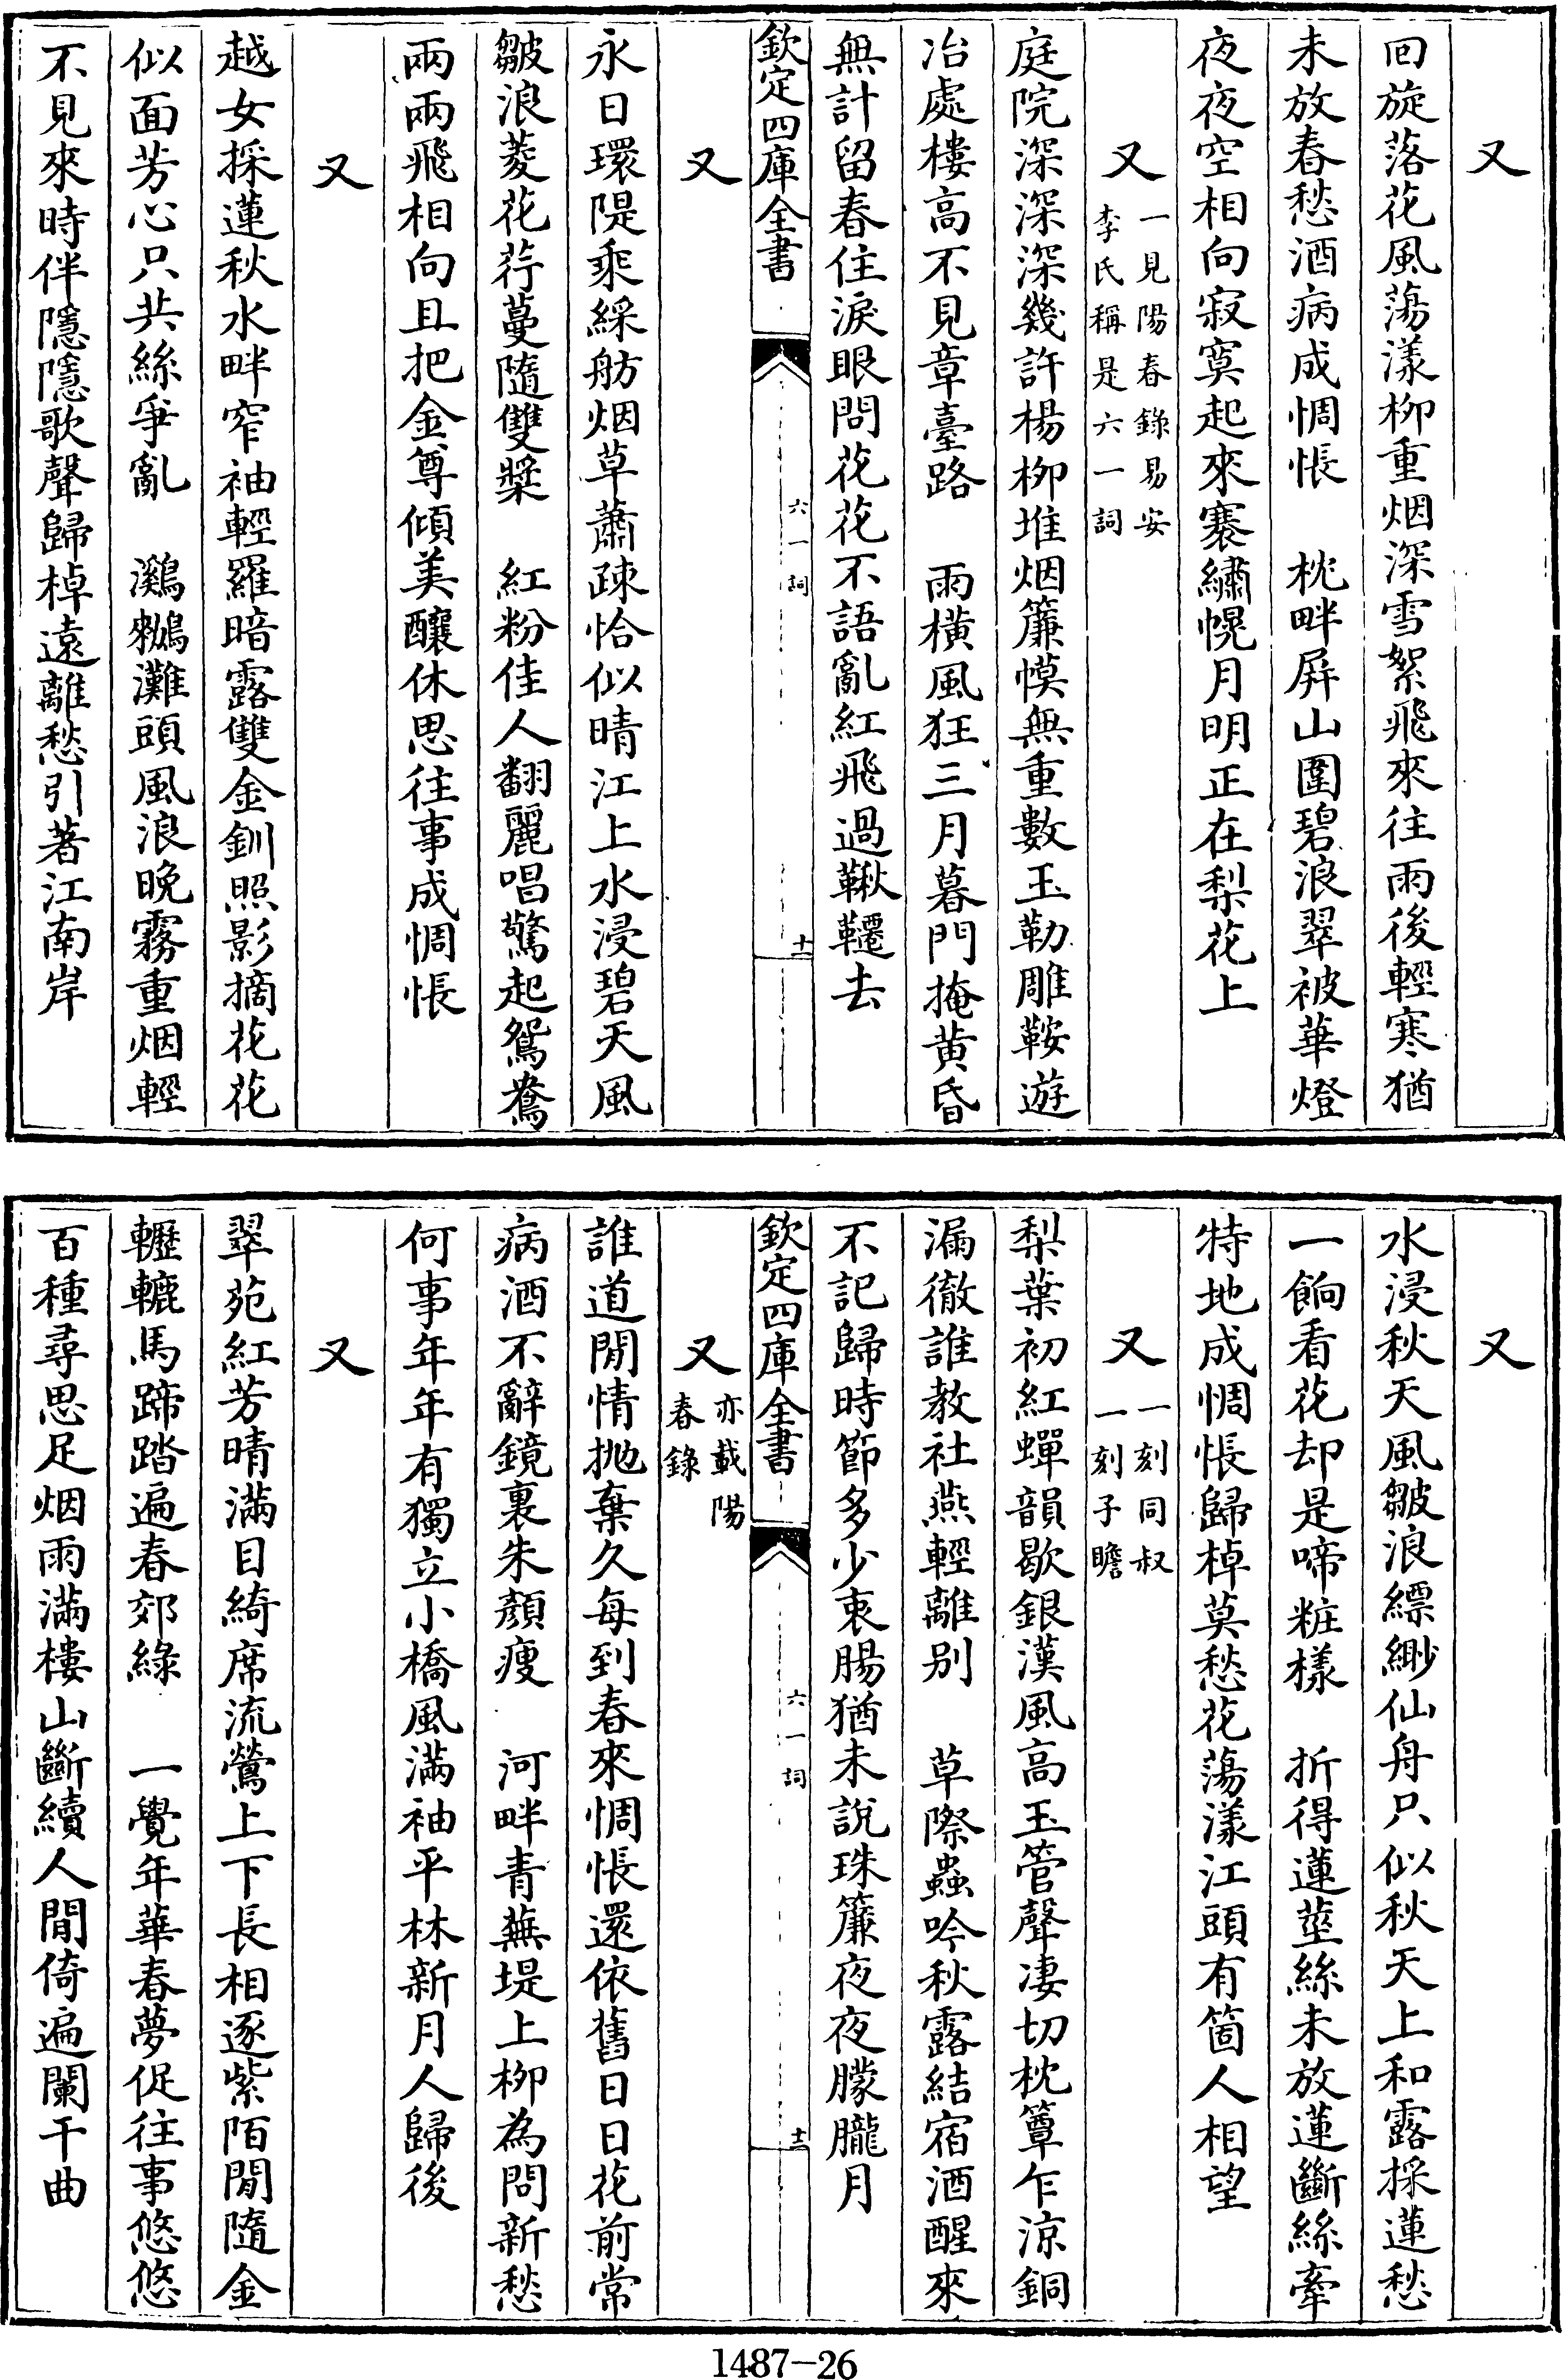 又
回旋落花風蕩漾柳重烟深雪絮飛來往雨後輕寒猶
未放春愁酒病成惆悵　枕畔屏山圍碧浪翠被華燈
夜夜空相向寂寞起來褰繡幌月明正在梨花上
又　一見陽春錄易安
李氏稱是六一詞
庭院深深深幾許楊柳堆烟簾幙無重數玉勒雕鞍遊
冶處樓高不見章臺路　雨橫風狂三月暮門掩黄昏
無計留春住淚眼問花花不語亂紅飛過鞦韆去
欽定四庫全書　六一詞　十一
又
永日環隄乘綵舫烟草蕭疎恰似晴江上水浸碧天風
皺浪菱花荇蔓隨雙槳　紅粉佳人翻麗唱驚起鴛鴦
兩兩飛相向且把金尊傾美釀休思往事成惆悵
又
越女採蓮秋水畔窄袖輕羅暗露雙金釧照影摘花花
似面芳心只共絲爭亂　鸂鶒灘頭風浪晚霧重烟輕
不見來時伴隱隱歌聲歸棹遠離愁引著江南岸
又
水浸秋天風皺浪縹緲仙舟只似秋天上和露採蓮愁
一餉看花却是啼粧樣　折得蓮莖絲未放蓮斷絲牽
特地成惆悵歸棹莫愁花蕩漾江頭有箇人相望
又　一刻同叔
一刻子瞻
梨葉初紅蟬韻歇銀漢風高玉管聲凄切枕簟乍涼銅
漏徹誰教社燕輕離别　草際蟲吟秋露結宿酒醒來
不記歸時節多少衷腸猶未說珠簾夜夜朦朧月
欽定四庫全書　六一詞　十二
又　亦載陽
春錄
誰道閒情抛棄久每到春來惆悵還依舊日日花前常
病酒不辭鏡裏朱顔瘦　河畔青蕪堤上柳為問新愁
何事年年有獨立小橋風滿袖平林新月人歸後
又
翠苑紅芳晴滿目綺席流鶯上下長相逐紫陌閒隨金
轣轆馬蹄踏遍春郊綠　一覺年華春夢促往事悠悠
百種尋思足烟雨滿樓山斷續人閒倚遍闌干曲
1487—26